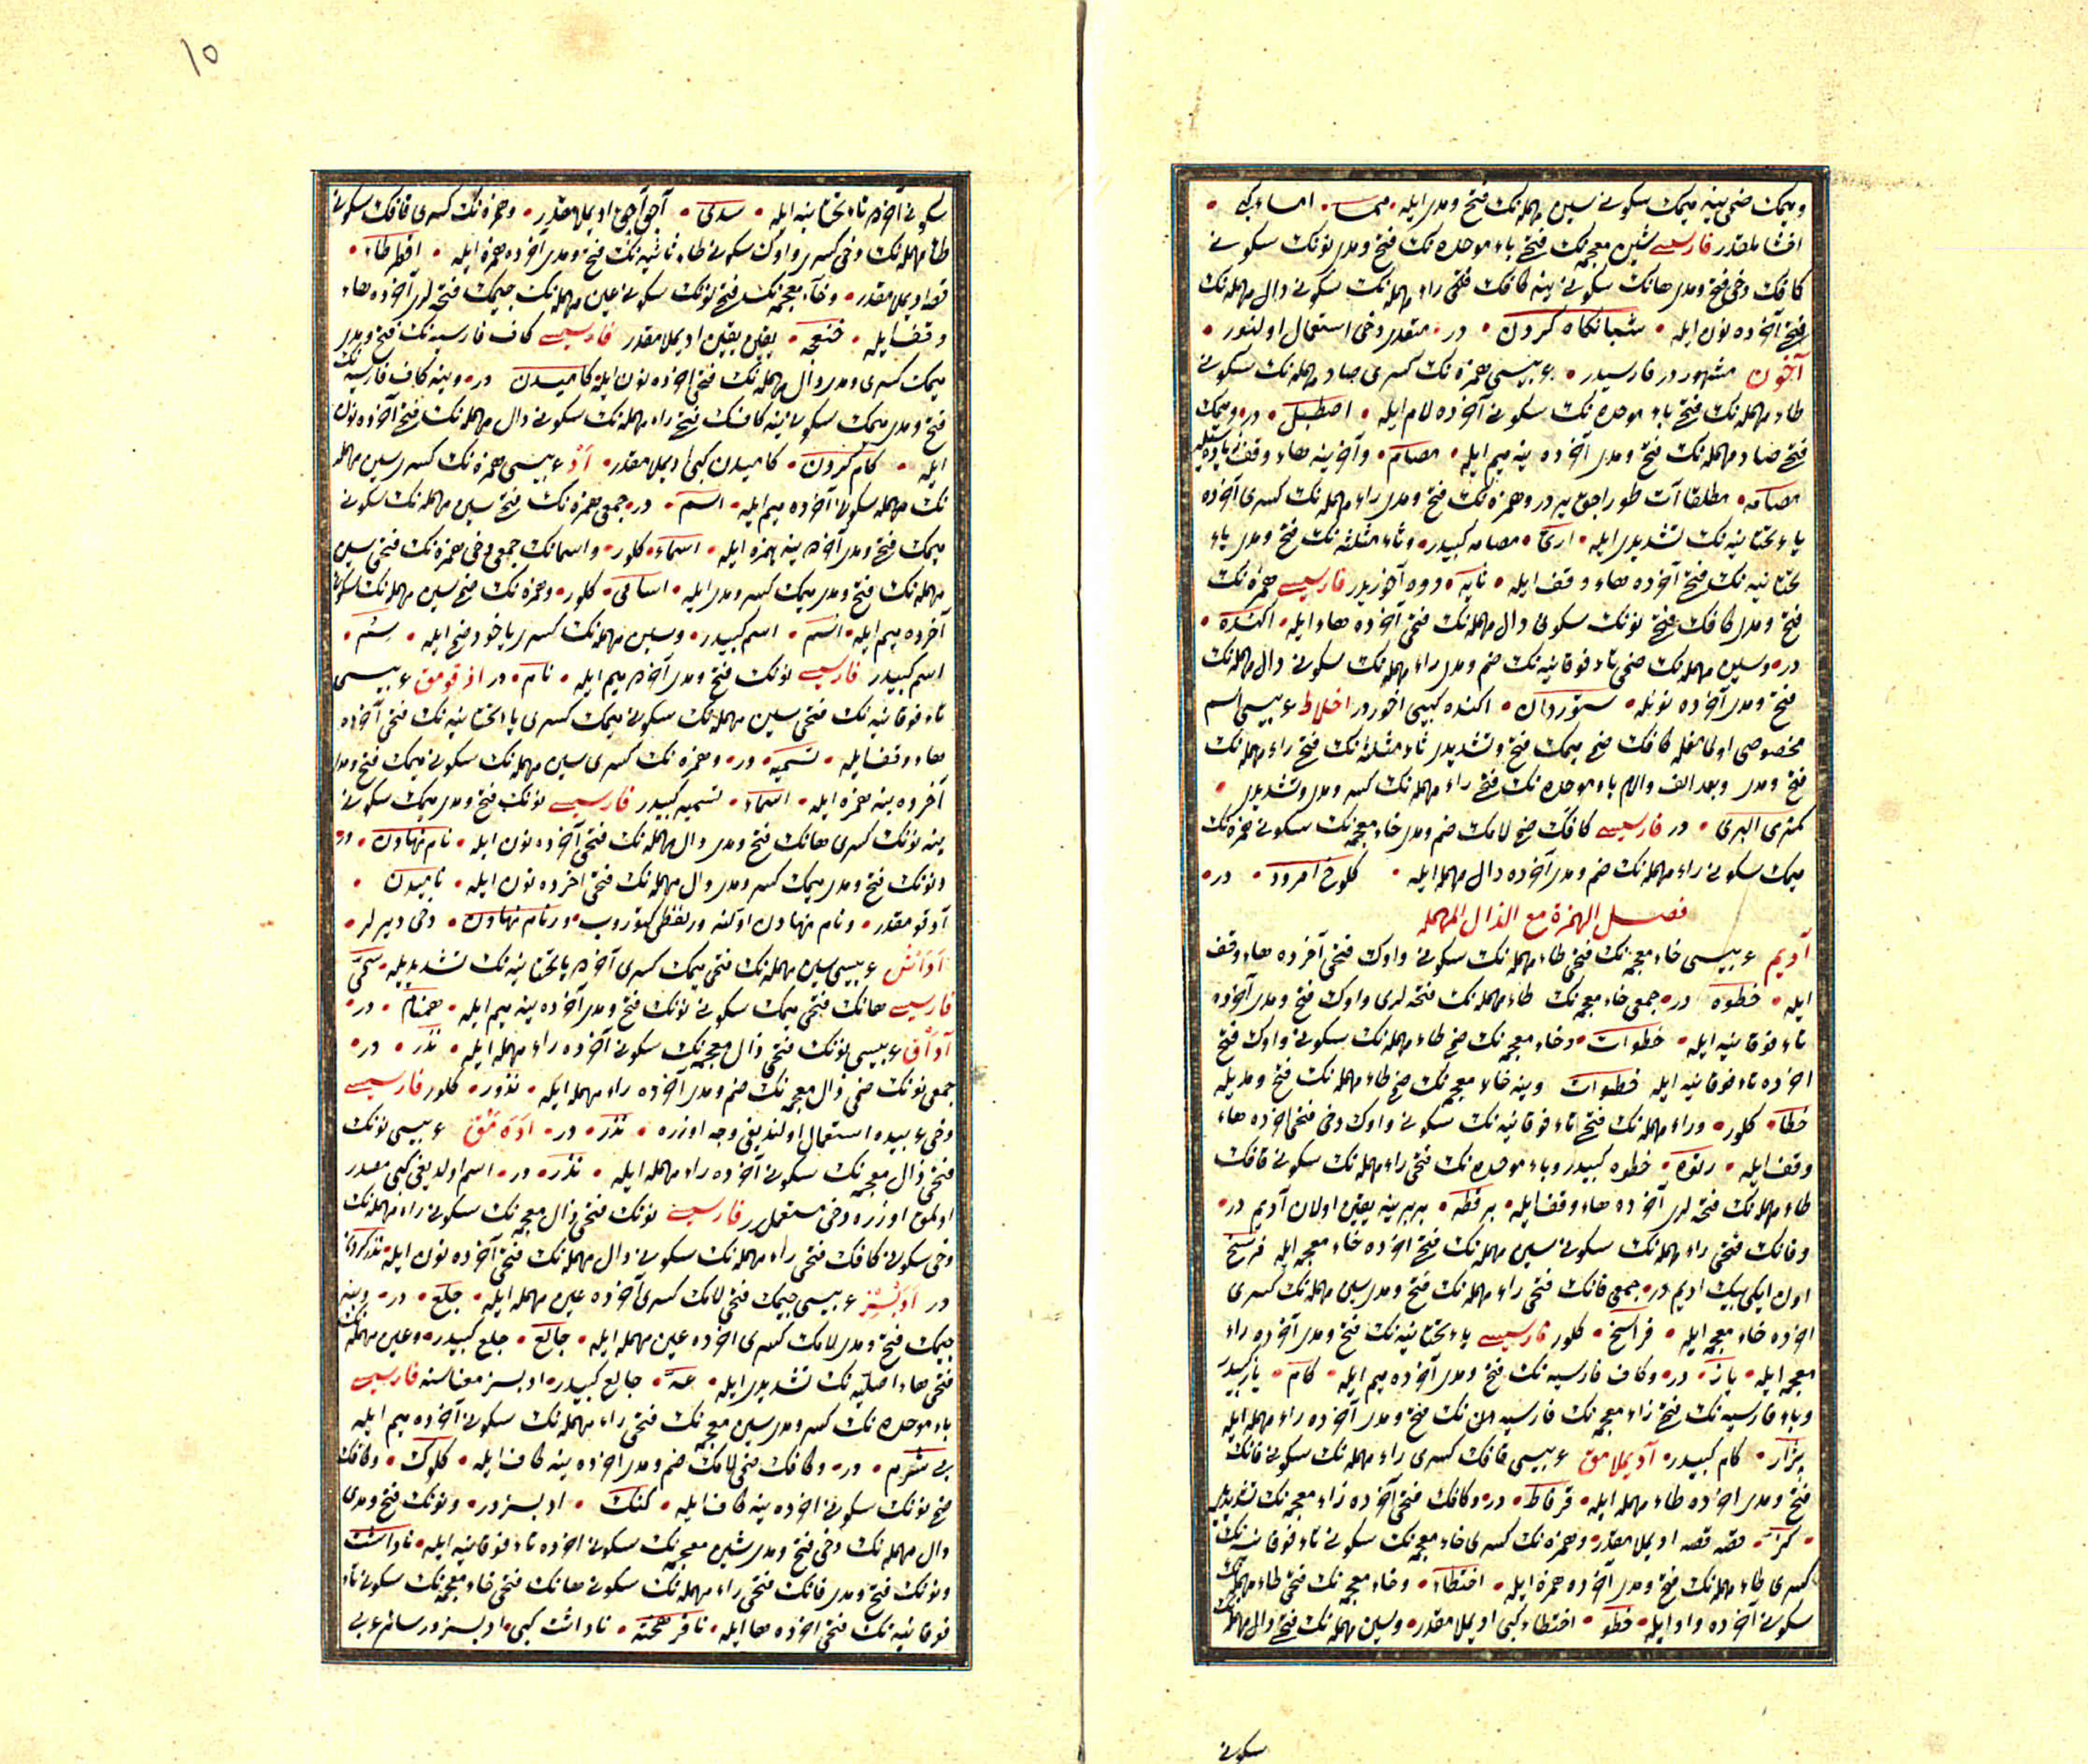 ومیمك ضمی ینه میمك سكونی سین مهمله‌نك فتح ومدی ایله • ممسا • امساء كبی •
اخشاملقدر فارسیسی شین معجمه‌نك فتحی باء موحده‌نك فتح ومدی نونك سكونی
كافك دخی فتح ومدی هانك سكونی ینه كافك فتحی راء مهمله‌نك سكونی دال مهمله‌نك
فتحی آخرده نون ایله • شبانكاه كردن • در • متعدی دخی استعمال اولنور •
آخون مشهوردر فارسیدر • عربیسی همزه‌نك كسری صاد مهمله‌نك سكونی
طاء مهمله‌نك فتحی باء موحده‌نك سكونی آخرده لام ایله • اصطبل • در • ومیمك
فتحی صاد مهمله‌نك فتح ومدی آخرده ینه میم ایله • مصام • وآخرینه هاء وقف زیاده‌سیله
مصامه • مطلقا آت طوراجق یردر وهمزه‌نك فتح ومدی راء مهمله‌نك كسری آخرده
یاء تحتانیه‌نك تشدیدی ایله • اری • مصامه كبیدر • وثاء مثلثه‌نك فتح ومدی یاء
تحتانیه‌نك فتحی آخرده هاء وقف ایله • ثایه • دوه آخوریدر فارسیسی همزه‌نك
فتح ومدی كافك فتحی نونك سكونی دال مهمله‌نك فتحی آخرده هاء ایله • اكنده •
در • وسین مهمله‌نك ضمی تاء فوقانیه‌نك ضم ومدی راء مهمله‌نك سكونی دال مهمله‌نك
فتح ومدی آخرده نونله • ستوردان • اكنده كبیی اخوردر اخلاط عربیسی اسم
مخصوصی اولمامغله كافك ضم میمك فتح وتشدیدی ثاء مثلثه‌نك فتحی راء مهمله‌نك
فتح ومدی وبعد الف والام باء موحده‌نك فتحی راء مهمله‌نك كسر ومدی وتشدیدی •
كمثری البری • در فارسیسی كافك ضم لامك ضم ومدی خاء معجمه‌نك سكونی همزه‌نك
میمك سكونی راء مهمله‌نك ضم ومدی آخرده دال مهمله ایله • كلوخ امرود • در •
فصل الهمزة مع الدال المهمله
آدیم عربیسی خاء معجمه‌نك فتحی طاء مهمله‌نك سكونی واوك فتحی آخرده هاء وقف
ایله • خطوه در • جمعی خاء معجمه‌نك طاء مهمله‌نك فتحه‌لری واوك فتح ومدی آخرده
تاء فوقانیه ایله • خطوات • وخاء معجمه‌نك ضم طاء مهمله‌نك سكونی واوك فتح
اخرده تاء فوقانیه ایله خطوات وینه خاء معجمه‌نك ضم طاء مهمله‌نك فتح ومدیله
خطا • كلور • وراء مهمله‌نك فتحی تاء فوقانیه‌نك سكونی واوك دخی فتحی اخرده هاء
وقف ایله • رتوه • خطوه كبیدر وباء موحده‌نك فتحی راء مهمله‌نك سكونی قافك
طاء مهمله‌نك فتحه‌لری آخرده هاء وقف ایله • برقطه • بربرینه یقین اولان آدیم در •
وفانك فتحی راء مهمله‌نك سكونی سین مهمله‌نك فتحی اخرده خاء معجمه ایله فرسخ
اون ایكی بیك ادیم در • جمعی فانك فتحی راء مهمله‌نك فتح ومدی سین مهمله‌نك كسری
اخرده خاء معجمه ایله • فراسخ • كلور فارسیسی یاء تحتانیه‌نك فتح ومدی آخرده زاء
معجمه ایله • یاز • در • وكاف فارسیه‌نك فتح ومدی آخرده میم ایله • كام • یاز كبیدر
وباء فارسیه‌نك فتحی زاء معجمه‌نك فارسیه‌سنك فتح ومدی آخرده راء مهمله ایله
پژار • كام كبیدر • آدیملامق عربیسی قافك كسری راء مهمله‌نك سكونی فانك
فتح ومدی اخرده طاء مهمله ایله • قرفاط • در • وكافك فتحی آخرده زاء معجمه‌نك تشدیدی
• كز • قصه قصه ادیملامقدر • وهمزه‌نك كسری خاء معجمه‌نك سكونی تاء فوقانیه‌نك
كسری طاء مهمله‌نك فتح ومدی آخرده همزه ایله • اختطاء • وخاء معجمه‌نك فتحی طاء مهمله‌نك
سكونی آخرده واو ایله • خطو • اختطاء كبی ادیملامقدر • وسین مهمله‌نك فتحی دال مهمله‌نك
سكونی
١٥
سكونی آخرده یاء تحتانیه ایله • سدی • آچق آچق ادیملامقدر • وهمزه‌نك كسری قافك سكونی
طاء مهمله‌نك دخی كسری واوك سكونی طاء ثانیه‌نك فتح ومدی آخرده همزه ایله • اقطوطاء •
قصه ادیملامقدر • وخاء معجمه‌نك فتحی نونك سكونی عین مهمله‌نك جیمك فتحه‌لری آخرده هاء
وقف ایله • خنعجه • یقین یقین ادیملامقدر فارسیسی كاف فارسیه‌نك فتح ومدی
میمك كسری ومدی دال مهمله‌نك فتحی اخرده نون ایله كامیدن در • وینه كاف فارسیه‌نك
فتح ومدی میمك سكونی ینه كافك فتحی راء مهمله‌نك سكونی دال مهمله‌نك فتحی آخرده نون
ایله • كام كردن • كامیدن كبی ادیملامقدر • آد عربیسی همزه‌نك كسری سین مهمله
نك مهمله سكونی آخرده میم ایله • اسم • در • جمعی همزه‌نك فتحی سین مهمله‌نك سكونی
میمك فتح ومدی آخرده ینه همزه ایله • اسماء • كلور • واسمانك جمعی دخی همزه‌نك فتحی سین
مهمله‌نك فتح ومدی میمك كسر ومدی ایله • اسامی • كلور • وهمزه‌نك ضم سین مهمله‌نك سكونی
آخرده میم ایله • اسم • اسم كبیدر • وسین مهمله‌نك كسری یاخود ضم ایله • سم •
اسم كبیدر فارسیسی نونك فتح ومدی آخرده میم ایله • نام • در اد قومق عربیسی
تاء فوقانیه‌نك فتحی سین مهمله‌نك سكونی میمك كسری یاء تحتانیه‌نك فتحی آخرده
هاء وقف ایله • تسمیه • در • وهمزه‌نك كسری سین مهمله‌نك سكونی میمك فتح ومدی
آخرده ینه همزه ایله • اسماء • تسمیه كبیدر فارسیسی نونك فتح ومدی میمك سكونی
ینه نونك كسری هانك فتح ومدی دال مهمله‌نك فتحی آخرده نون ایله • نام نهادن • در
ونونك فتح ومدی میمك كسر ومدی دال مهمله‌نك فتحی اخرده نون ایله • نامیدن •
آد قومقدر • ونام نهادن اوكنه ور لفظی كتوروب • ور نام نهادن • دخی دیرلر •
آداش عربیسی سین مهمله‌نك فتحی میمك كسری آخرده یاء تحتانیه‌نك تشدیدیله • سمی
فارسیسی هانك فتحی میمك سكونی نونك فتح ومدی آخرده ینه میم ایله • همنام • در •
آداق عربیسی نونك فتحی ذال معجمه‌نك سكونی آخرده راء مهمله ایله • نذر • در •
جمعی نونك ضمی ذال معجمه‌نك ضم ومدی آخرده راء مهمله ایله • نذور • كلور فارسیسی
دخی عربیده استعمال اولندیغی وجه اوزره • نذر • در • اداقمق عربیسی نونك
فتحی ذال معجمه‌نك سكونی آخرده راء مهمله ایله • نذر • در • اسم اولدیغی كبی مصدر
اولمق اوزره دخی مستعملدر فارسیسی نونك فتحی ذال معجمه‌نك سكونی راء مهمله‌نك
دخی سكونی كافك فتحی راء مهمله‌نك سكونی دال مهمله‌نك فتحی آخرده نون ایله • نذر كردن
در ادبسز عربیسی جیمك فتحی لامك كسری آخرده عین مهمله ایله • جلع • در • وینه
جیمك فتح ومدی لامك كسری اخرده عین مهمله ایله • جالع • جلع كبیدر • وعین مهمله‌نك
فتحی هاء اصلیه‌نك تشدیدی ایله • عه • جالع كبیدر • ادبسز معناسنه فارسیسی
باء موحده‌نك كسر ومدی شین معجمه‌نك فتحی راء مهمله‌نك سكونی آخرده میم ایله
بی شرم • در • وكافك ضمی لامك ضم ومدی اخرده ینه كاف ایله • كلوك • وكافك
ضم نونك سكونی اخرده ینه كاف ایله • كنك • ادبسزدر • ونونك فتح ومدی
دال مهمله‌نك دخی فتح ومدی شین معجمه‌نك سكونی اخرده تاء فوقانیه ایله • ناداشت
ونونك فتح ومدی فانك فتحی راء مهمله‌نك سكونی هانك فتحی خاء معجمه‌نك سكونی تاء
فوقانیه‌نك فتحی اخرده هاء ایله • نافرهخته • ناداشت كبی • ادبسزدر